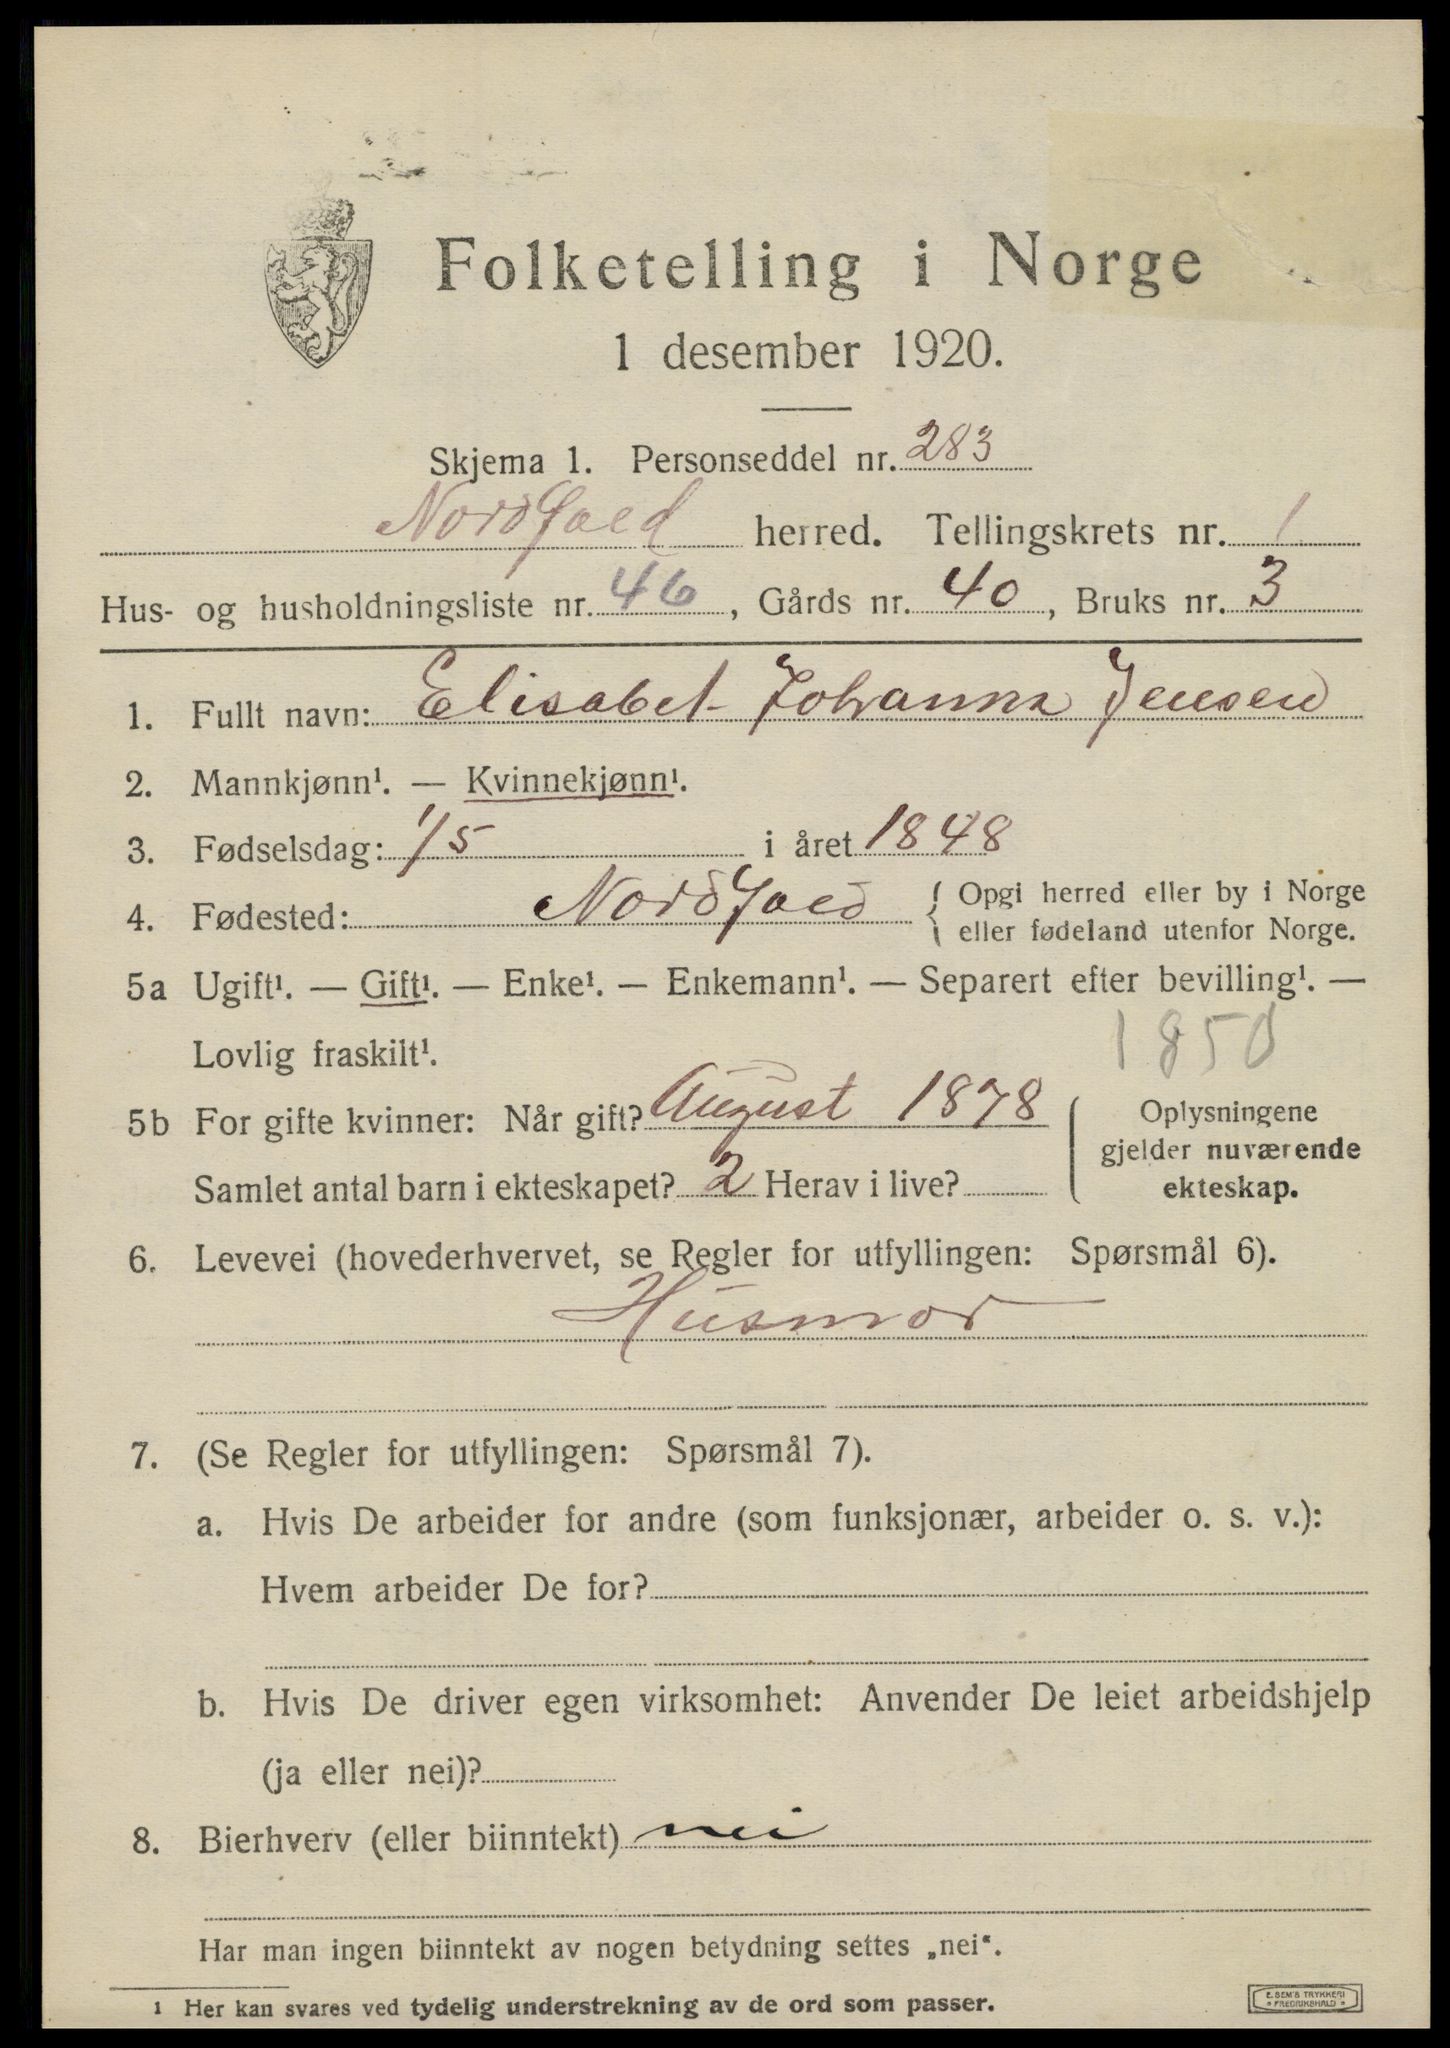 Folketelling i Norge
1 desember 1920.
Skjema 1. Personseddel nr. 283
Nordfold herred. Tellingskrets nr. 1
Hus- og husholdningsliste nr. 46, Gårds nr. 40, Bruks nr. 3
1. Fullt navn: Elisabet Johanna Jensen
2. Mannkjønn¹. — Kvinnekjønn¹.
3. Fødselsdag: 1/5 i året 1848
4. Fødested: Nordfold { Opgi herred eller by i Norge
eller fødeland utenfor Norge.
5a Ugift¹. — Gift¹. — Enke¹. — Enkemann¹. — Separert efter bevilling¹. —
Lovlig fraskilt¹. 1850
5b For gifte kvinner: Når gift? August 1878
Samlet antal barn i ekteskapet? 2 Herav i live?
Oplysningene
gjelder nuværende
ekteskap.
6. Levevei (hovederhvervet, se Regler for utfyllingen: Spørsmål 6).
Husmor
7. (Se Regler for utfyllingen: Spørsmål 7).
a. Hvis De arbeider for andre (som funksjonær, arbeider o. s. v.):
Hvem arbeider De for?
b. Hvis De driver egen virksomhet: Anvender De leiet arbeidshjelp
(ja eller nei)?
8. Bierhverv (eller biinntekt) nei
Har man ingen biinntekt av nogen betydning settes „nei“.
1 Her kan svares ved tydelig understrekning av de ord som passer.
E. SEM'S TRYKKERI
* FREDRIKSHALD *